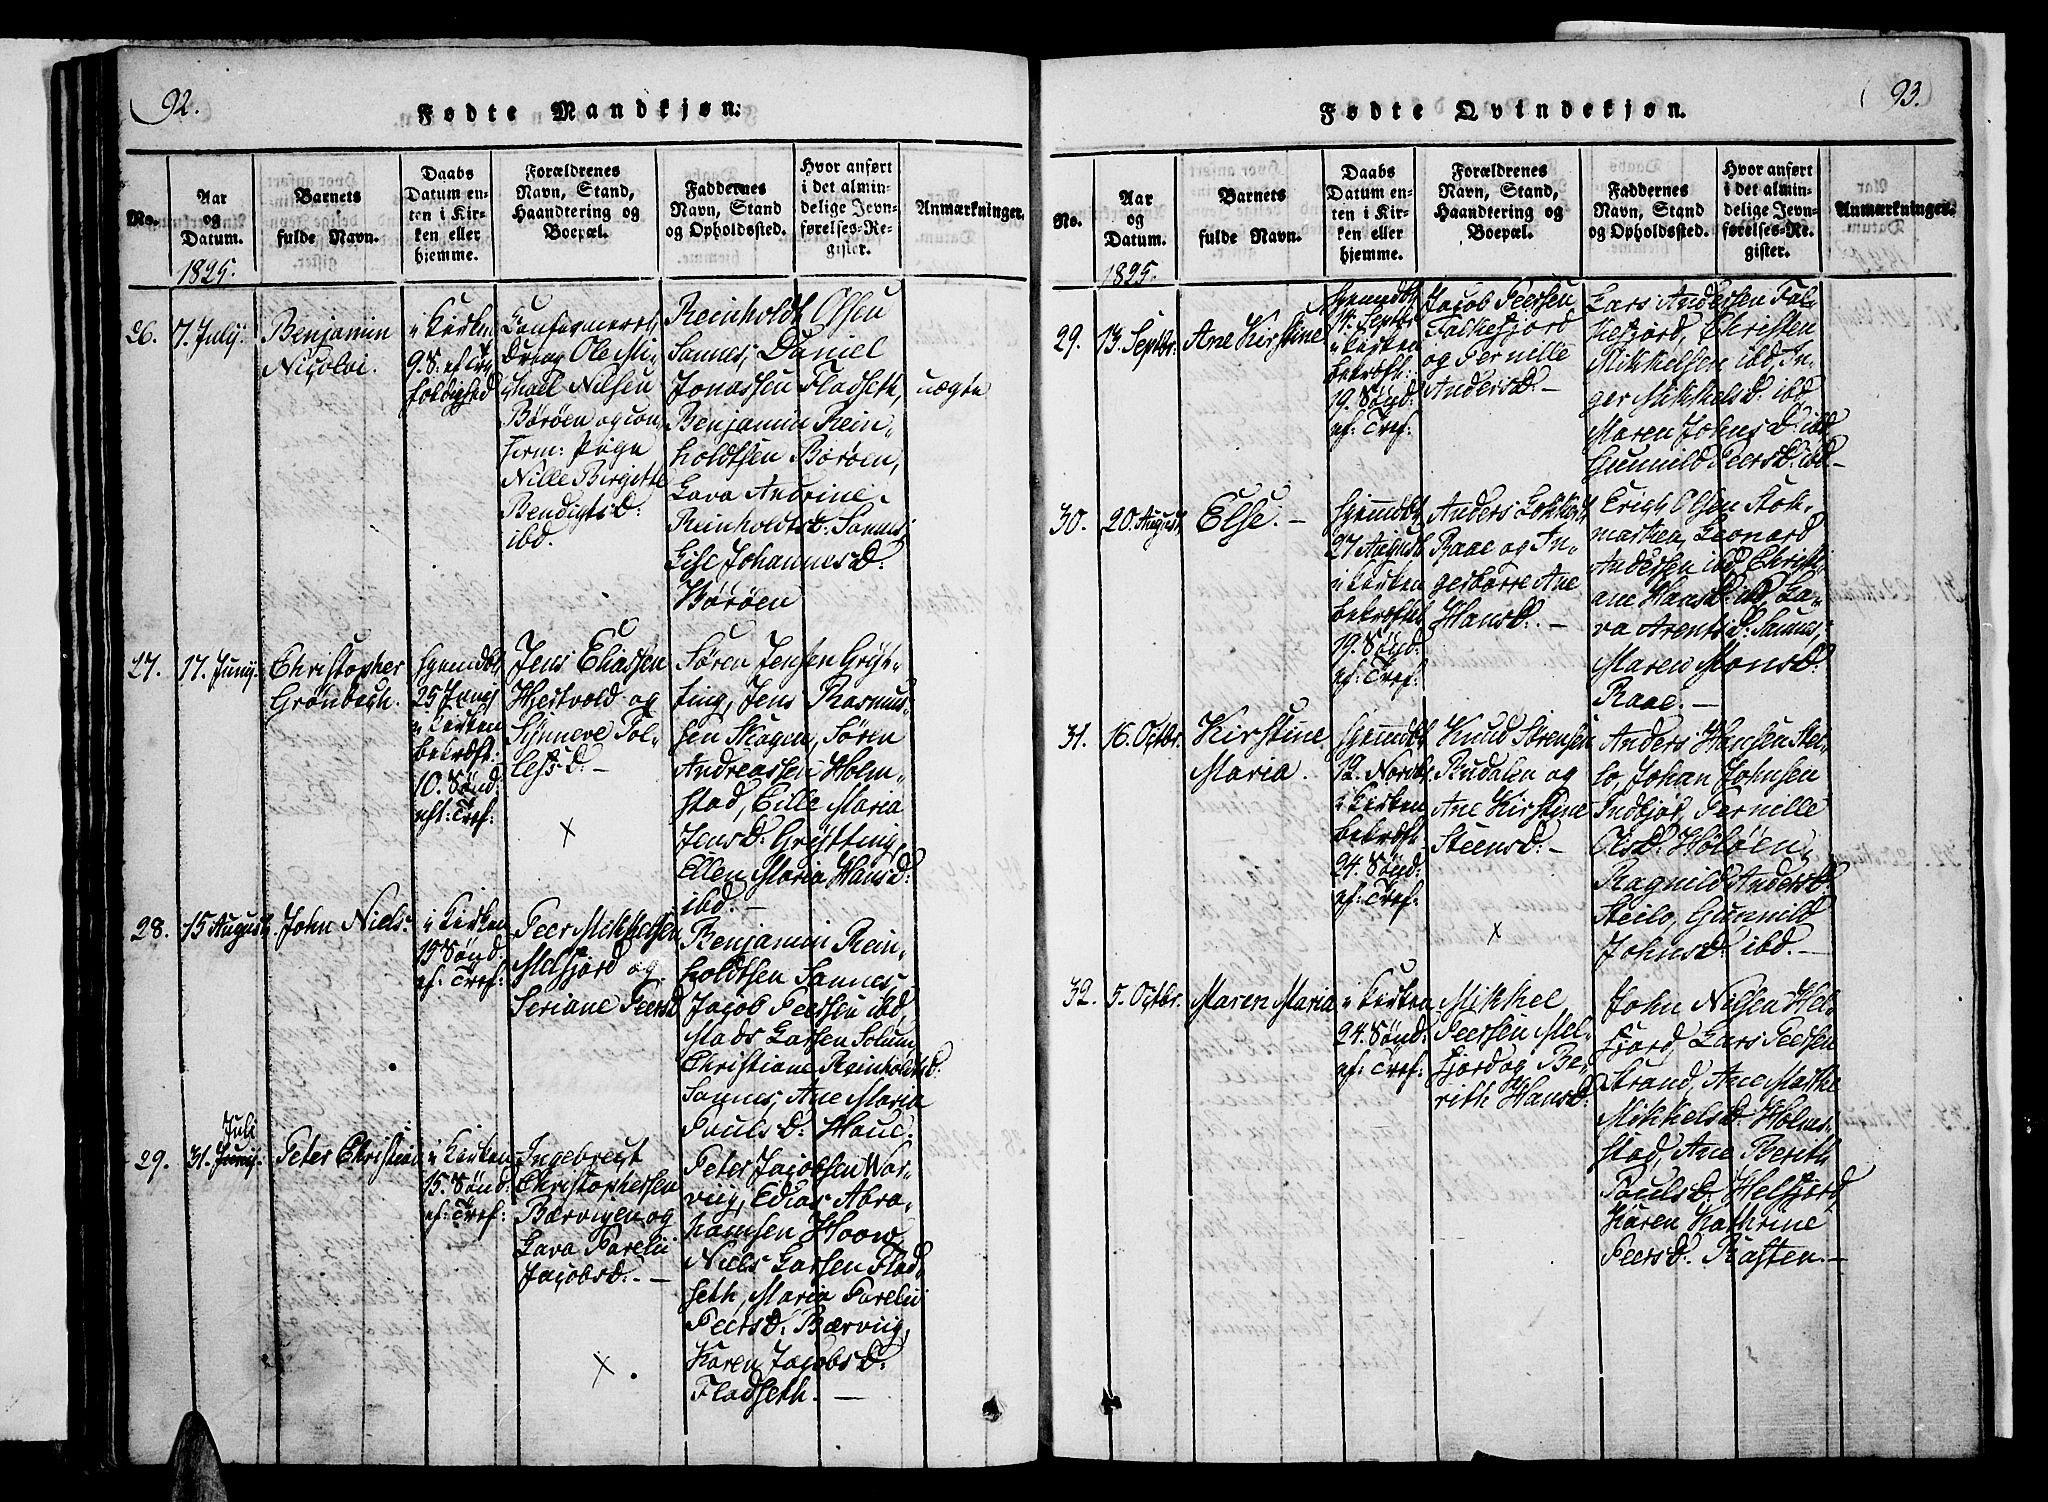 92.
Fødte Mandkjøn:
No.
Aar
og
Datum.
1825.
Barnets
fulde Navn.
Daabs
Datum en-
ten i Kir-
ken eller
hjemme.
Forældrenes
Navn, Stand,
Haandtering og
Boepæl.
Faddernes
Navn, Stand
og Opholdssted.
Hvor anført
i det almin-
delige Jevn-
førelses-Re-
gister.
Anmærkninger.
26.
7. July.
Benjamin
Nicolai.
i Kirken
9. S: ef Tre-
foldighed
Ole Mi-
chael Nilsen
Børøen og con-
firm: Pige
Nille Birgitte
Bendigtsd:
ibd.
Reinholdt Olsen
Sannes, Daniel
Jonassen Fladseth,
Benjamin Rein-
holdtsen Børøen,
Lava Andrine
Reinholdtsd: Sannes,
Lise Johannesd:
Børøen
uægte
27.
17. Juny.
Christopher
Grönbech.
hjemdbt
25 Juny
i Kirken
bekræft:
10. Sönd:
eft: Tref:
Jens Eliassen
Hjertvold og
Synneve Tol-
lefsd: –
×
Søren Jensen Grytt-
ting, Jens Rasmus-
sen Skogen, Søren
Andreassen Holm-
stad, Cille Maria
Jensd: Grytting,
Ellen Maria Hansd:
ibd. –
28.
15 August.
John Niels:
i Kirken
15 Sönd:
ef: Tref:
Peer Mikkelsen
Melfjord og
Seriane Peersd
Benjamin Rein-
holdtsen Sannes,
Jacob Peersen ibd,
Mads Larsen Solum,
Christiane Reinholdtsd:
Sannes, Ane Maria
Poulsd: Houe.
29.
Juli
31. Juny.
Peter Christian
i Kirken
15. Sönd:
ef: Tref:
Ingebregt
Christophersen
Bærvigen og
Lava Parelii
Jacobsd: –
×
Peter Jacobsen Vor-
viig, Edias Abra-
hamsen Hoow,
Niels Larsen Flad-
seth, Maria Parelii
Peersd: Bærviig,
Karen Jacobsd:
Fladseth. –
93.
Fødte Qvindekjøn.
No.
Aar
og
Datum.
1825.
Barnets
fulde Navn.
Daabs
Datum en-
ten i Kir-
ken eller
hjemme.
Forældrenes
Navn, Stand,
Haandtering og
Boepæl.
Faddernes
Navn, Stand
og Opholdssted.
Hvor anført
i det almin-
delige Jevn-
førelses-Re-
gister.
Anmærkninger.
29.
13. Septbr.
Ane Kirstine
hjemdbt
14. Septbr
i Kirken
bekræft:
19. Sönd:
ef: Tref:
Jacob Peersen
Falkefjord
og Pernille
Andersd: –
Lars Andersen Fal-
kefjord, Christen
Mikkelsen ibd, In-
ger Mikkelsd: ibd
Maren Johnsd: ibd
Gunnild Peersd: ibd –
30.
20. August.
Else. –
hjemdbt
27 August
i Kirken
bekræftet
19. Sönd:
ef: Tref:
Anders Lokkert
Raae og In-
geborre Ane
Hansd: –
Erich Olsen Stok-
marken, Leonard
Andersen ibd, Christi-
ane Hansd: ibd, La-
va Arentsd: Sannes,
Maren Monsd:
Raae. –
31.
16. Octbr.
Kirstine
Maria.
hjemdbt
12. Novbr
i Kirken
bekræft:
24. Sönd:
ef: Tref:
Knud Sørensen
Rudalen og
Ane Kirstine
Steensd: –
×
Anders Hansen Stei-
lo, Johan Johnsen
Indbjor, Pernille
Olsd: Holöen,
Ragnild Andersd:
Steilo, Gunnild
Johnsd: ibd. –
32.
5. Octbr.
Maren Maria
i Kirken
24. Sönd:
ef: Tref:
Mikkel
Peersen Mel-
fjord og Be-
rith Hansd:
John Nielsen Hel-
fjord, Lars Peersen
Strand, Ane Marthe
Mikkelsd: Holm-
stad, Ane Berith
Poulsd: Helfjord,
Karen Kathrine
Peersd: Rasten. –